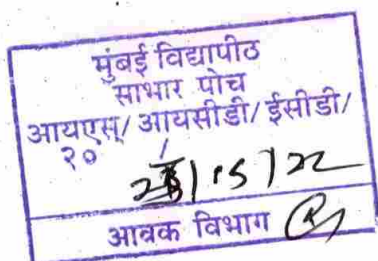 मुंबई विद्यापीठ
साभार पोच
आयएस/ आयसीडी/ ईसीडी/
२०
आवक विभाग